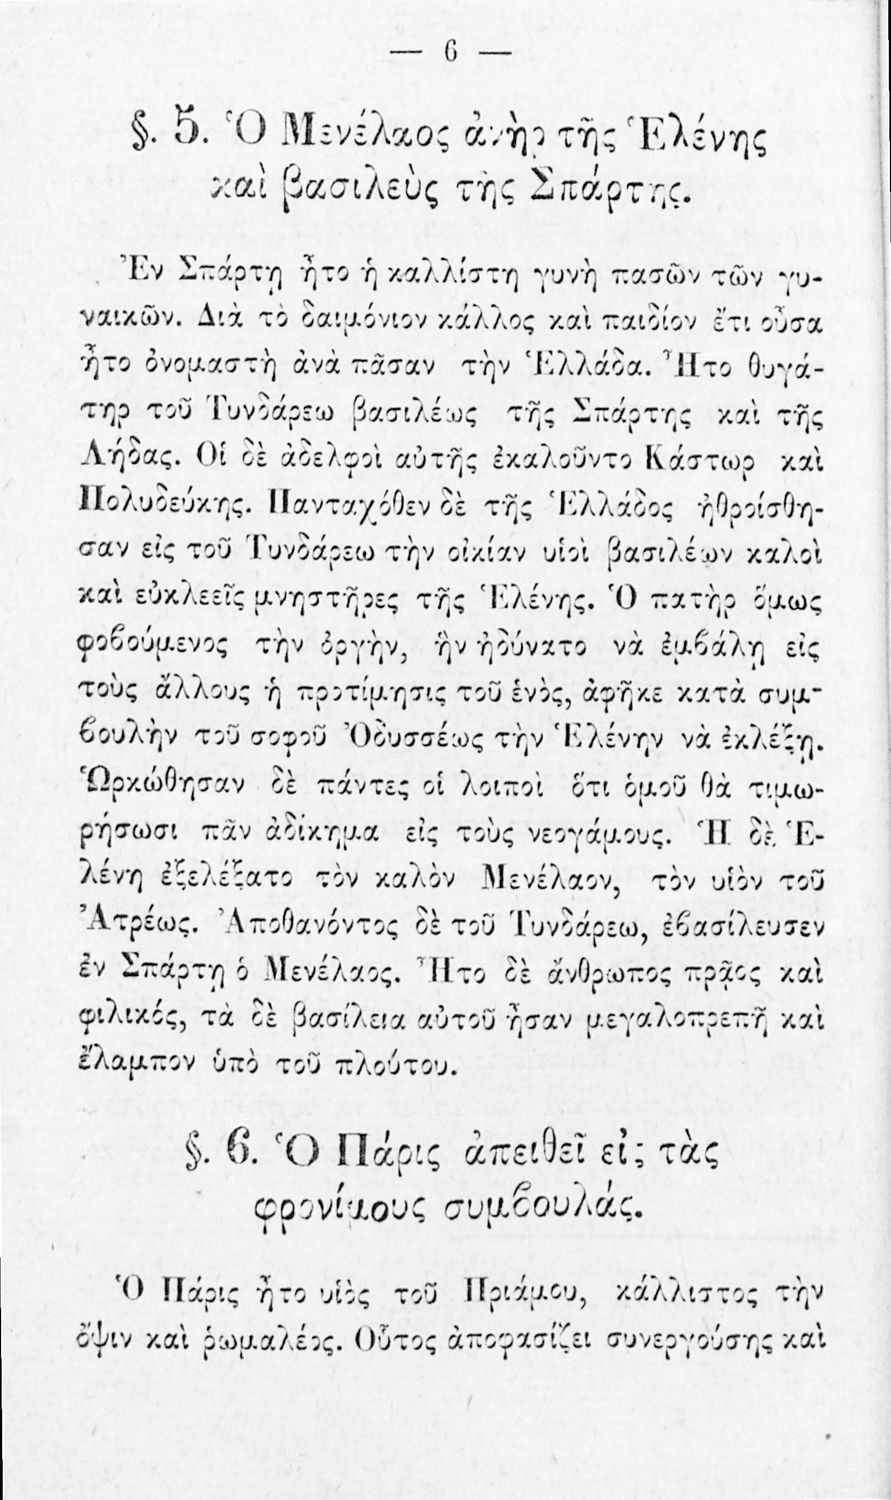 — 6 —
§. 5. Ὁ Μενέλαος ἀνὴρ τῆς Ἑλένης
καὶ βασιλεὺς τῆς Σπάρτης.
Ἐν Σπάρτῃ ἦτο ἡ καλλίστη γυνὴ πασῶν τῶν γυ-
ναικῶν. Διὰ τὸ δαιμόνιον κάλλος καὶ παιδίον ἔτι οὖσα
ἦτο ὀνομαστὴ ἀνὰ πᾶσαν τὴν Ἑλλάδα. Ἦτο θυγά-
τηρ τοῦ Τυνδάρεω βασιλέως τῆς Σπάρτης καὶ τῆς
Λήδας. Οἱ δὲ ἀδελφοὶ αὐτῆς ἐκαλοῦντο Κάστωρ καὶ
Πολυδεύκης. Πανταχόθεν δὲ τῆς Ἑλλάδος ἠθροίσθη-
σαν εἰς τοῦ Τυνδάρεω τὴν οἰκίαν υἱοὶ βασιλέων καλοὶ
καὶ εὐκλεεῖς μνηστῆρες τῆς Ἑλένης. Ὁ πατὴρ ὅμως
φοβούμενος τὴν ὀργὴν, ἣν ἠδύνατο νὰ ἐμβάλῃ εἰς
τοὺς ἄλλους ἡ προτίμησις τοῦ ἑνὸς, ἀφῆκε κατὰ συμ-
βουλὴν τοῦ σοφοῦ Ὀδυσσέως τὴν Ἑλένην νὰ ἐκλέξῃ.
Ὡρκώθησαν δὲ πάντες οἱ λοιποὶ ὅτι ὁμοῦ θὰ τιμω-
ρήσωσι πᾶν ἀδίκημα εἰς τοὺς νεογάμους. Ἡ δὲ Ἑ-
λένη ἐξελέξατο τὸν καλὸν Μενέλαον, τὸν υἱὸν τοῦ
Ἀτρέως. Ἀποθανόντος δὲ τοῦ Τυνδάρεω, ἐβασίλευσεν
ἐν Σπάρτῃ ὁ Μενέλαος. Ἦτο δὲ ἄνθρωπος πρᾷος καὶ
φιλικός, τὰ δὲ βασίλεια αὐτοῦ ἦσαν μεγαλοπρεπῆ καὶ
ἔλαμπον ὑπὸ τοῦ πλούτου.
§. 6. Ὁ Πάρις ἀπειθεῖ εἰς τὰς
φρονίμους συμβουλάς.
Ὁ Πάρις ἦτο υἱὸς τοῦ Πριάμου, κάλλιστος τὴν
ὄψιν καὶ ῥωμαλέος. Οὗτος ἀποφασίζει συνεργούσης καὶ